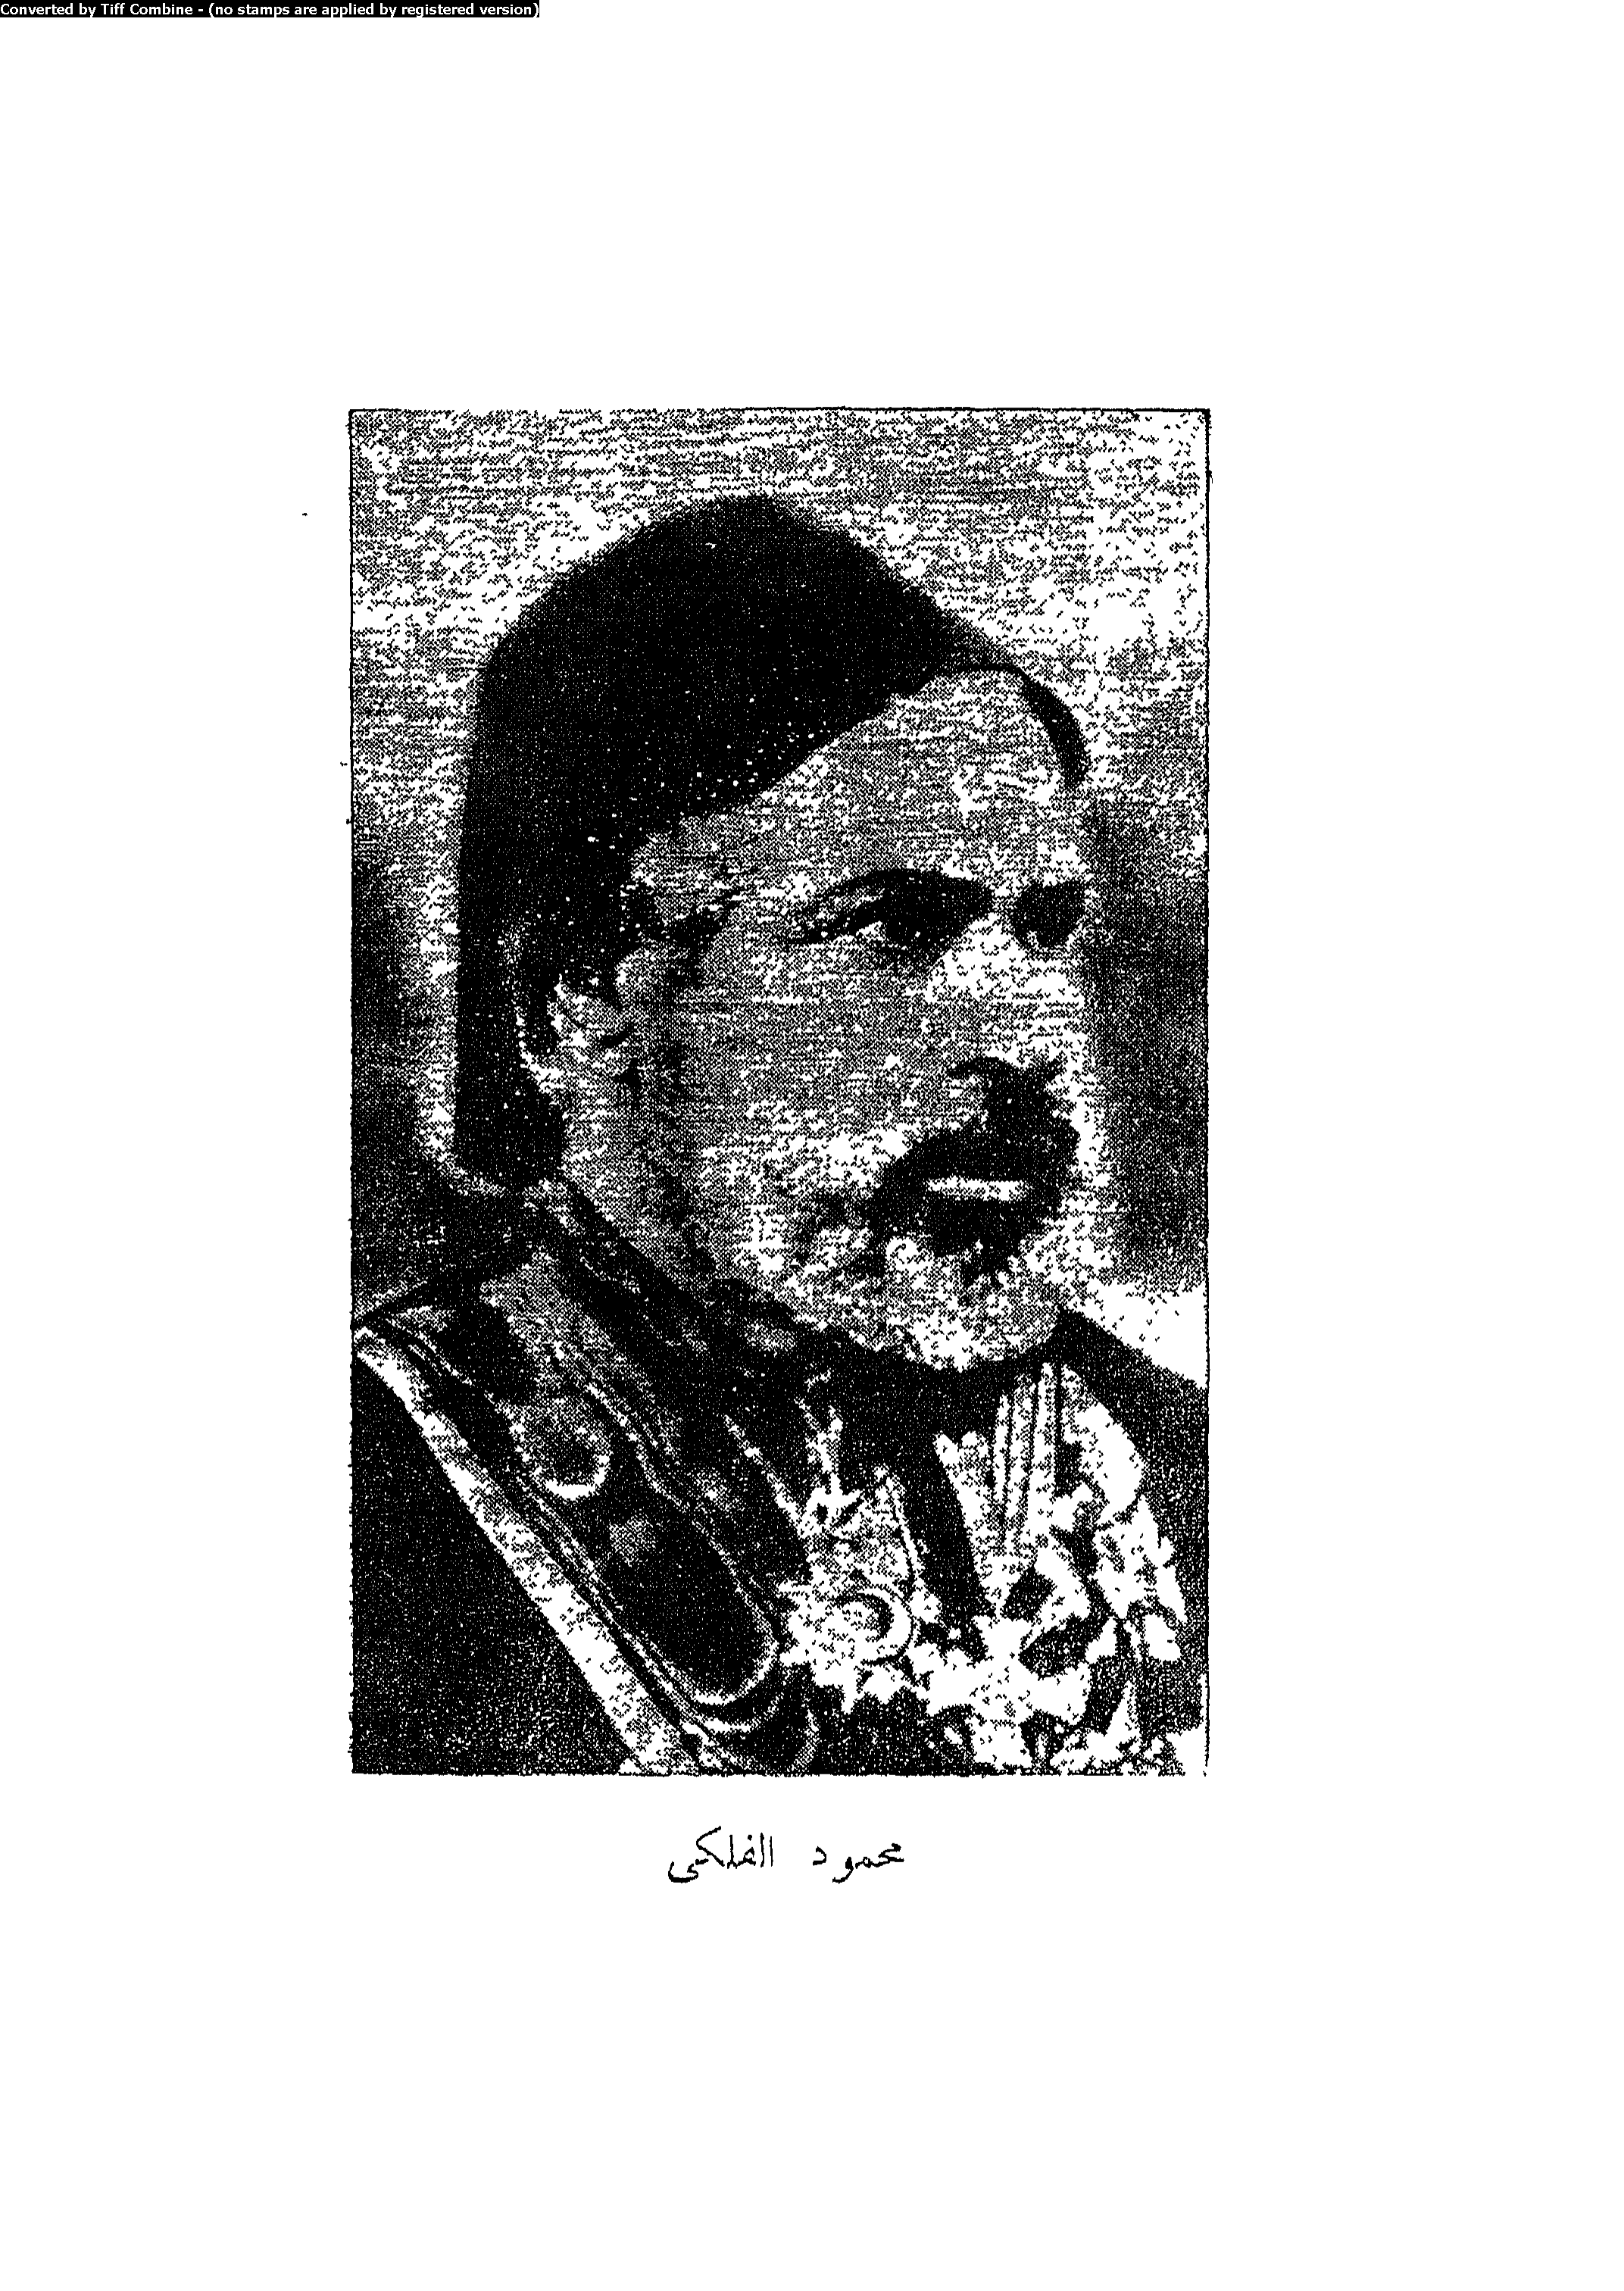 Converted by Tiff Combine - (no stamps are applied by registered version)
محمود الفلكى